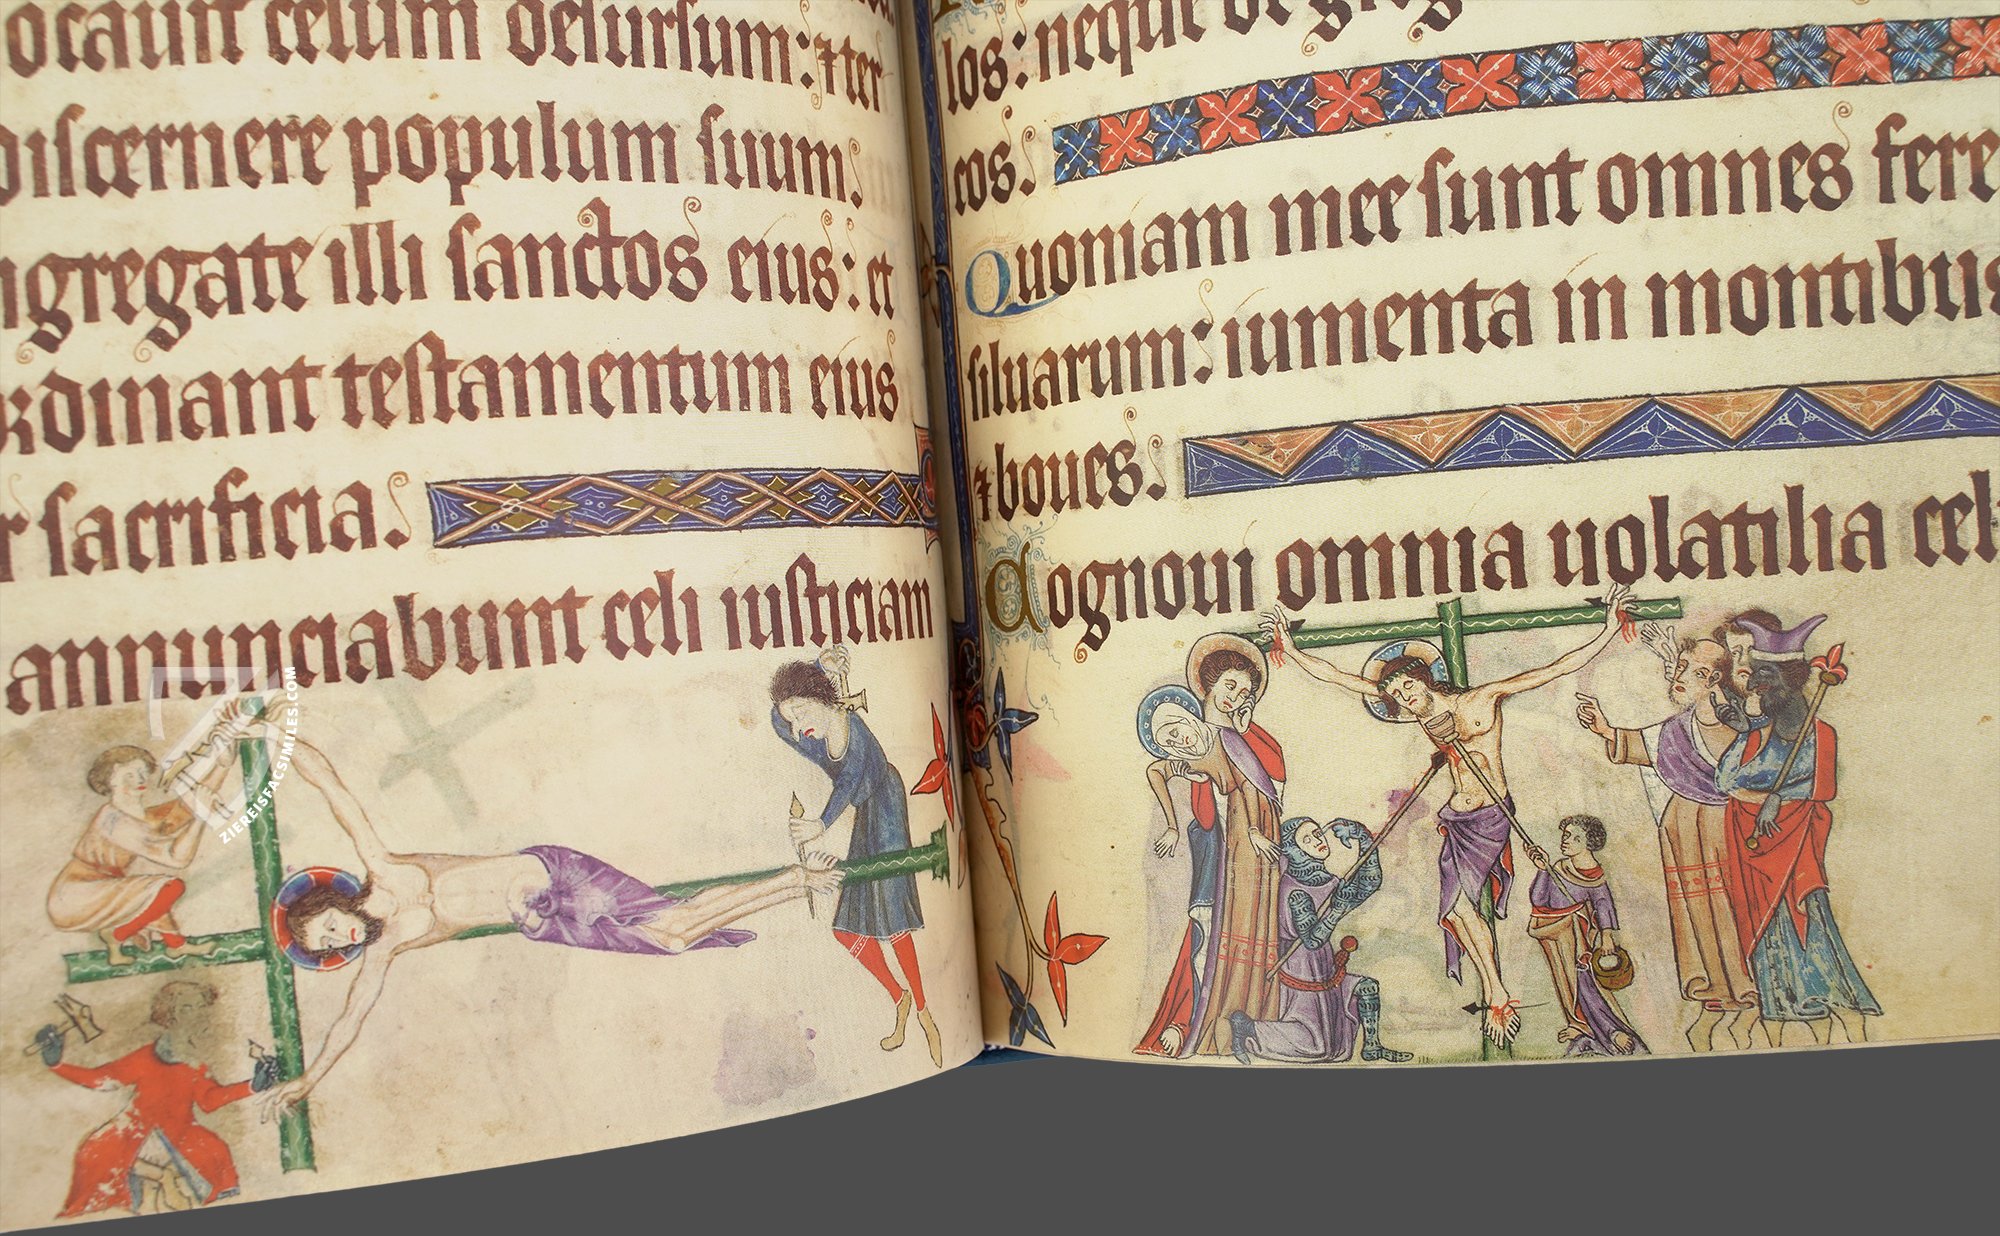 ocauit celum desursum: ⁊ ter
discernere populum suum.
ngregate illi sanctos eius: et
rdinant testamentum eius
r sacrificia.
annunciabunt celi iusticiam
los: neque de greg
cos.
Quoniam mee sunt omnes fere
siluarum: iumenta in montibus
⁊ boues.
Cognoui omnia uolatilia celi
ZIEREISFACSIMILES.COM